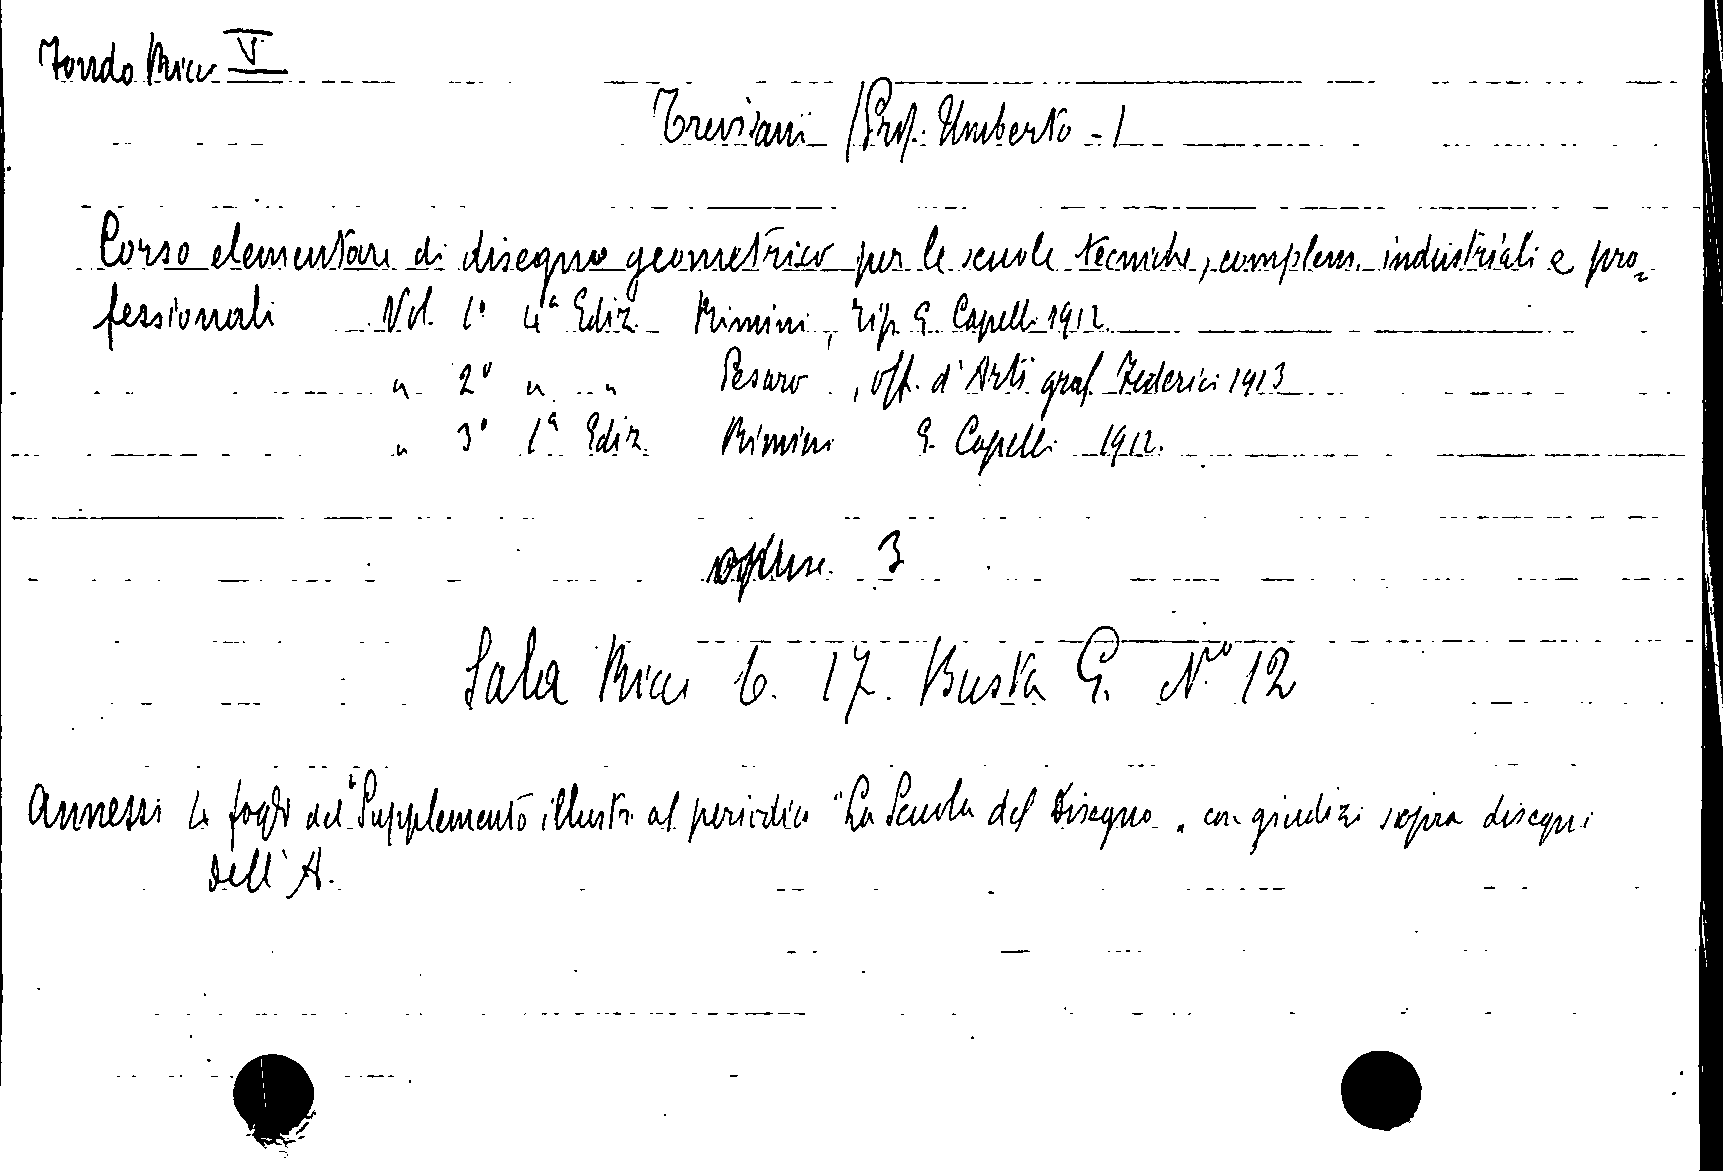 Fondo Ricci V
Trevisani (Prof. Umberto -)
Corso elementare di disegno geometrico per le scuole tecniche, complem. industriali e pro=
fessionali Vol. 1° 4ª Ediz. Rimini, tip. G. Capelli 1912.
" 2° " " Pesaro, off. d'Arti graf. Federici 1913
" 3° 1ª Ediz. Rimini G. Capelli 1912.
3
Sala Ricci 6. 17. Busta G. Nro 12
Annessi 4 fogli del "Supplemento illustr. al periodico "La Scuola del Disegno" con giudizi sopra disegni
dell'A.